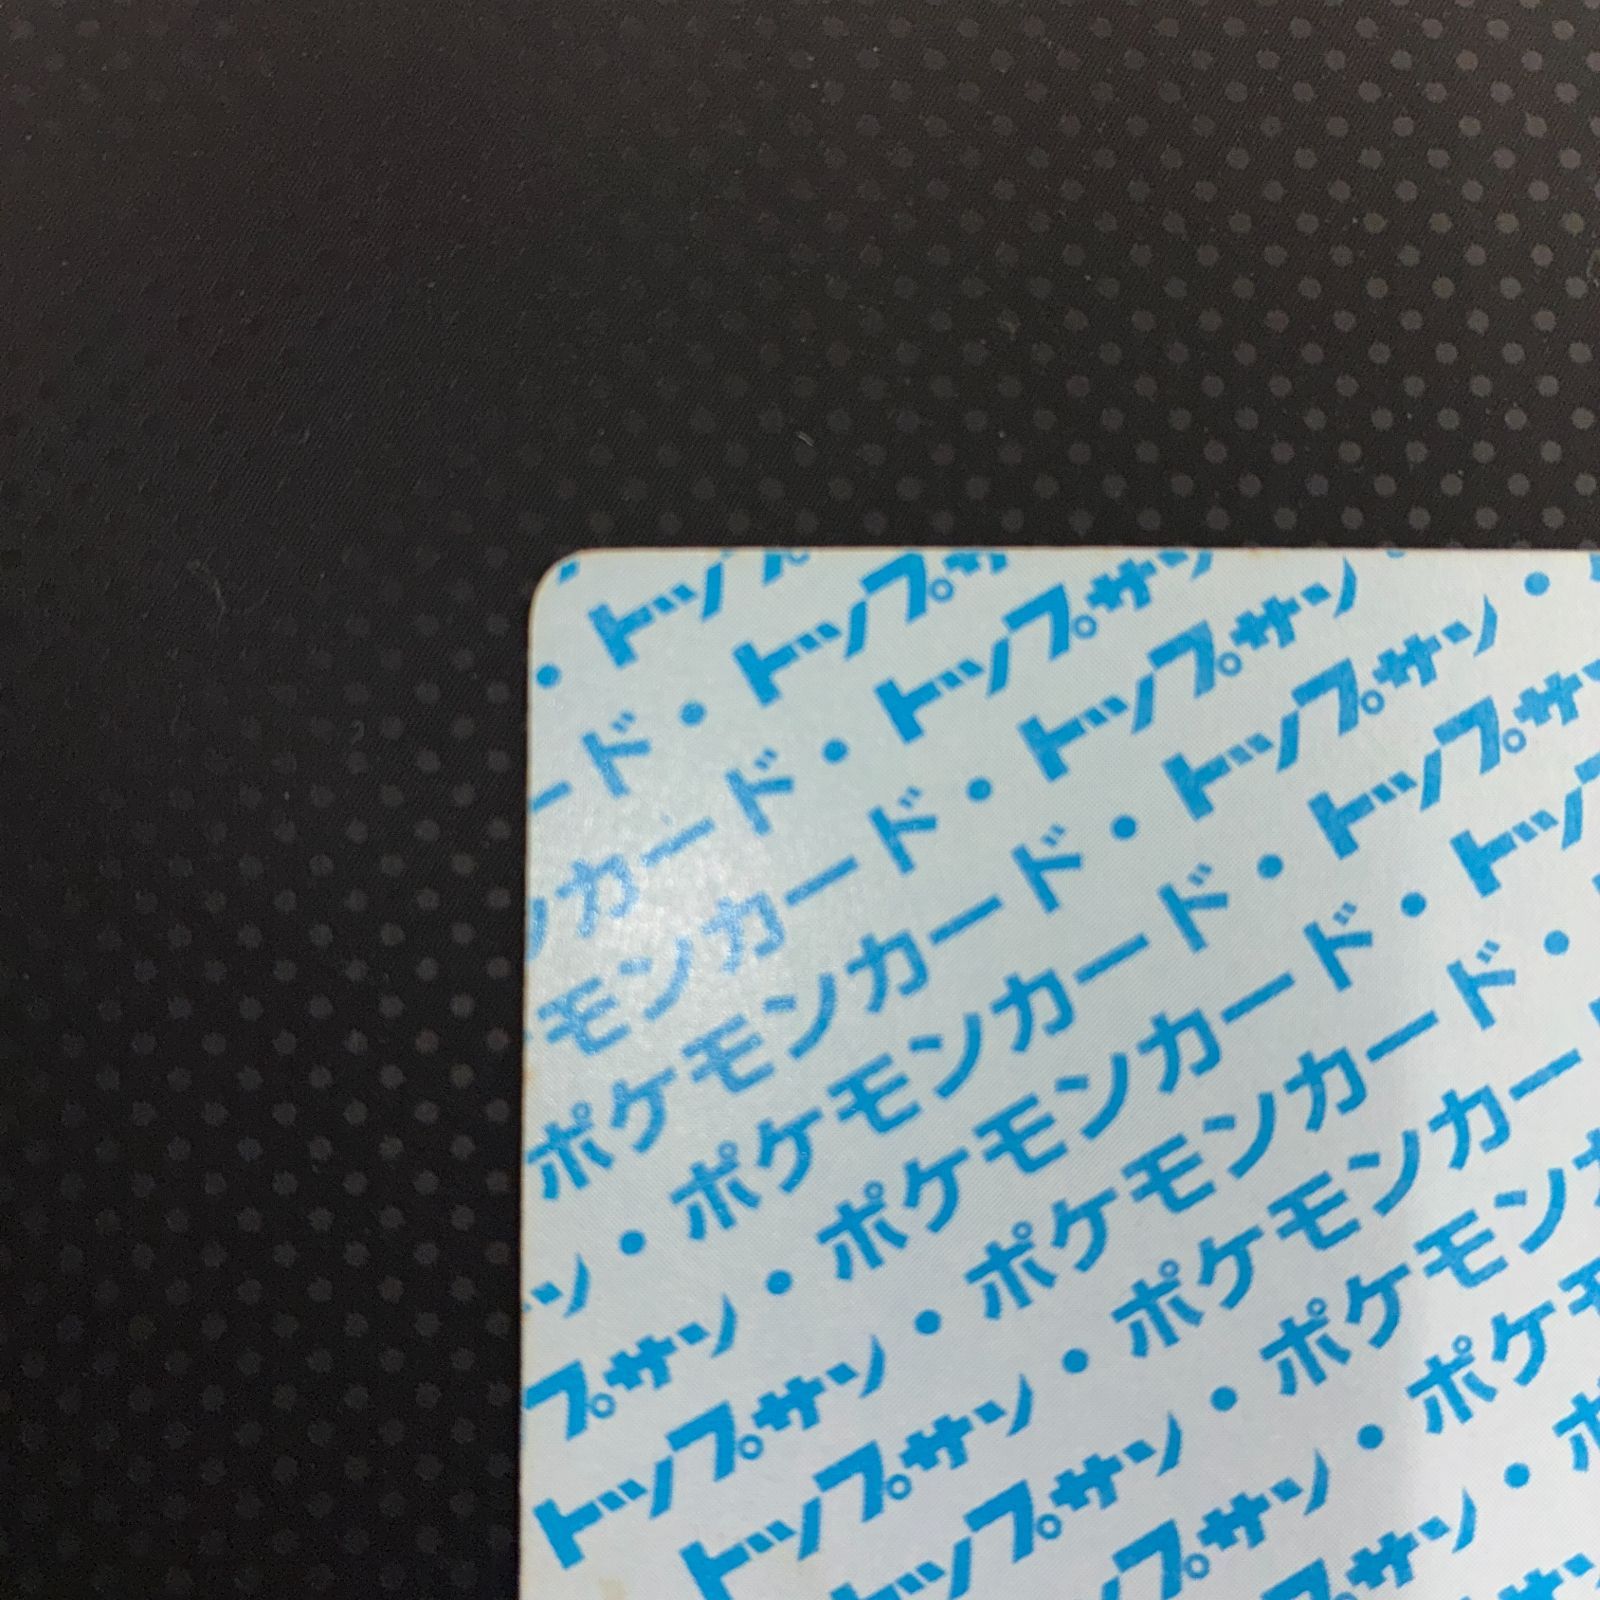 ・トッ
ード・トップサ
ンカード・トップサン
モンカード・トップサン
ポケモンカード・トップサン・
ン・ポケモンカード・トップサ
プサン・ポケモンカード・トップ
トップサン・ポケモンカード・
トップサン・ポケモンカー
トップサン・ポケモン
プサン・ポケ
サン・